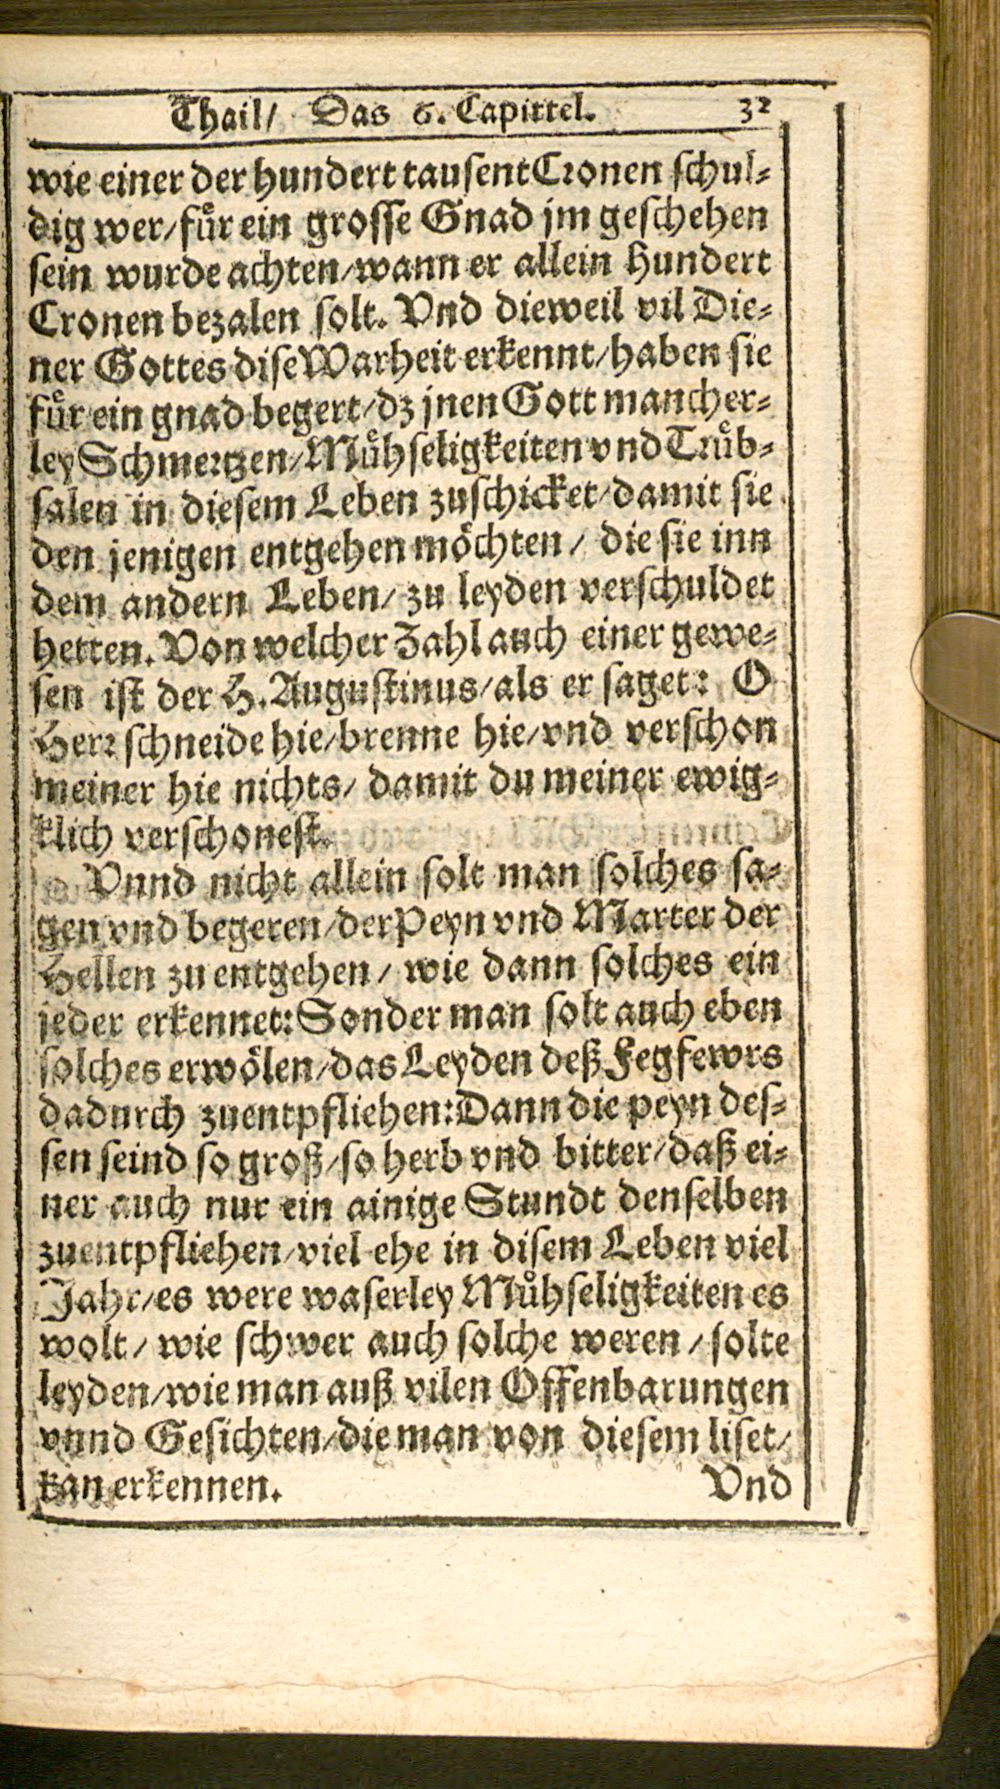 Thail/ Das 6. Capittel. 32
wie einer der hundert tausent Cronen schul⸗
dig wer/ fuͤr ein grosse Gnad jm geschehen
sein wurde achten/ wann er allein hundert
Cronen bezalen solt. Vnd dieweil vil Die⸗
ner Gottes dise Warheit erkennt/ haben sie
fuͤr ein gnad begert/ dz jnen Gott mancher⸗
ley Schmertzen/ Muͤhseligkeiten vnd Truͤb⸗
salen in diesem Leben zuschicket/ damit sie
den jenigen entgehen moͤchten/ die sie inn
dem andern Leben/ zu leyden verschuldet
hetten. Von welcher Zahl auch einer gewe⸗
sen ist der H. Augustinus/ als er saget: O
Herr schneide hie/ brenne hie/ vnd verschon
meiner hie nichts/ damit du meiner ewig⸗
klich verschonest.
Vnnd nicht allein solt man solches sa⸗
gen vnd begeren/ der Peyn vnd Marter der
Hellen zu entgehen/ wie dann solches ein
jeder erkennet: Sonder man solt auch eben
solches erwoͤlen/ das Leyden deß Fegfewrs
dadurch zuentpfliehen: Dann die peyn des⸗
sen seind so groß/ so herb vnd bitter/ daß ei⸗
ner auch nur ein ainige Stundt denselben
zuentpfliehen/ viel ehe in disem Leben viel
Jahr/ es were waserley Muͤhseligkeiten es
wolt/ wie schwer auch solche weren/ solte
leyden/ wie man auß vilen Offenbarungen
vnnd Gesichten/ die man von diesem liset/
kan erkennen. Vnd